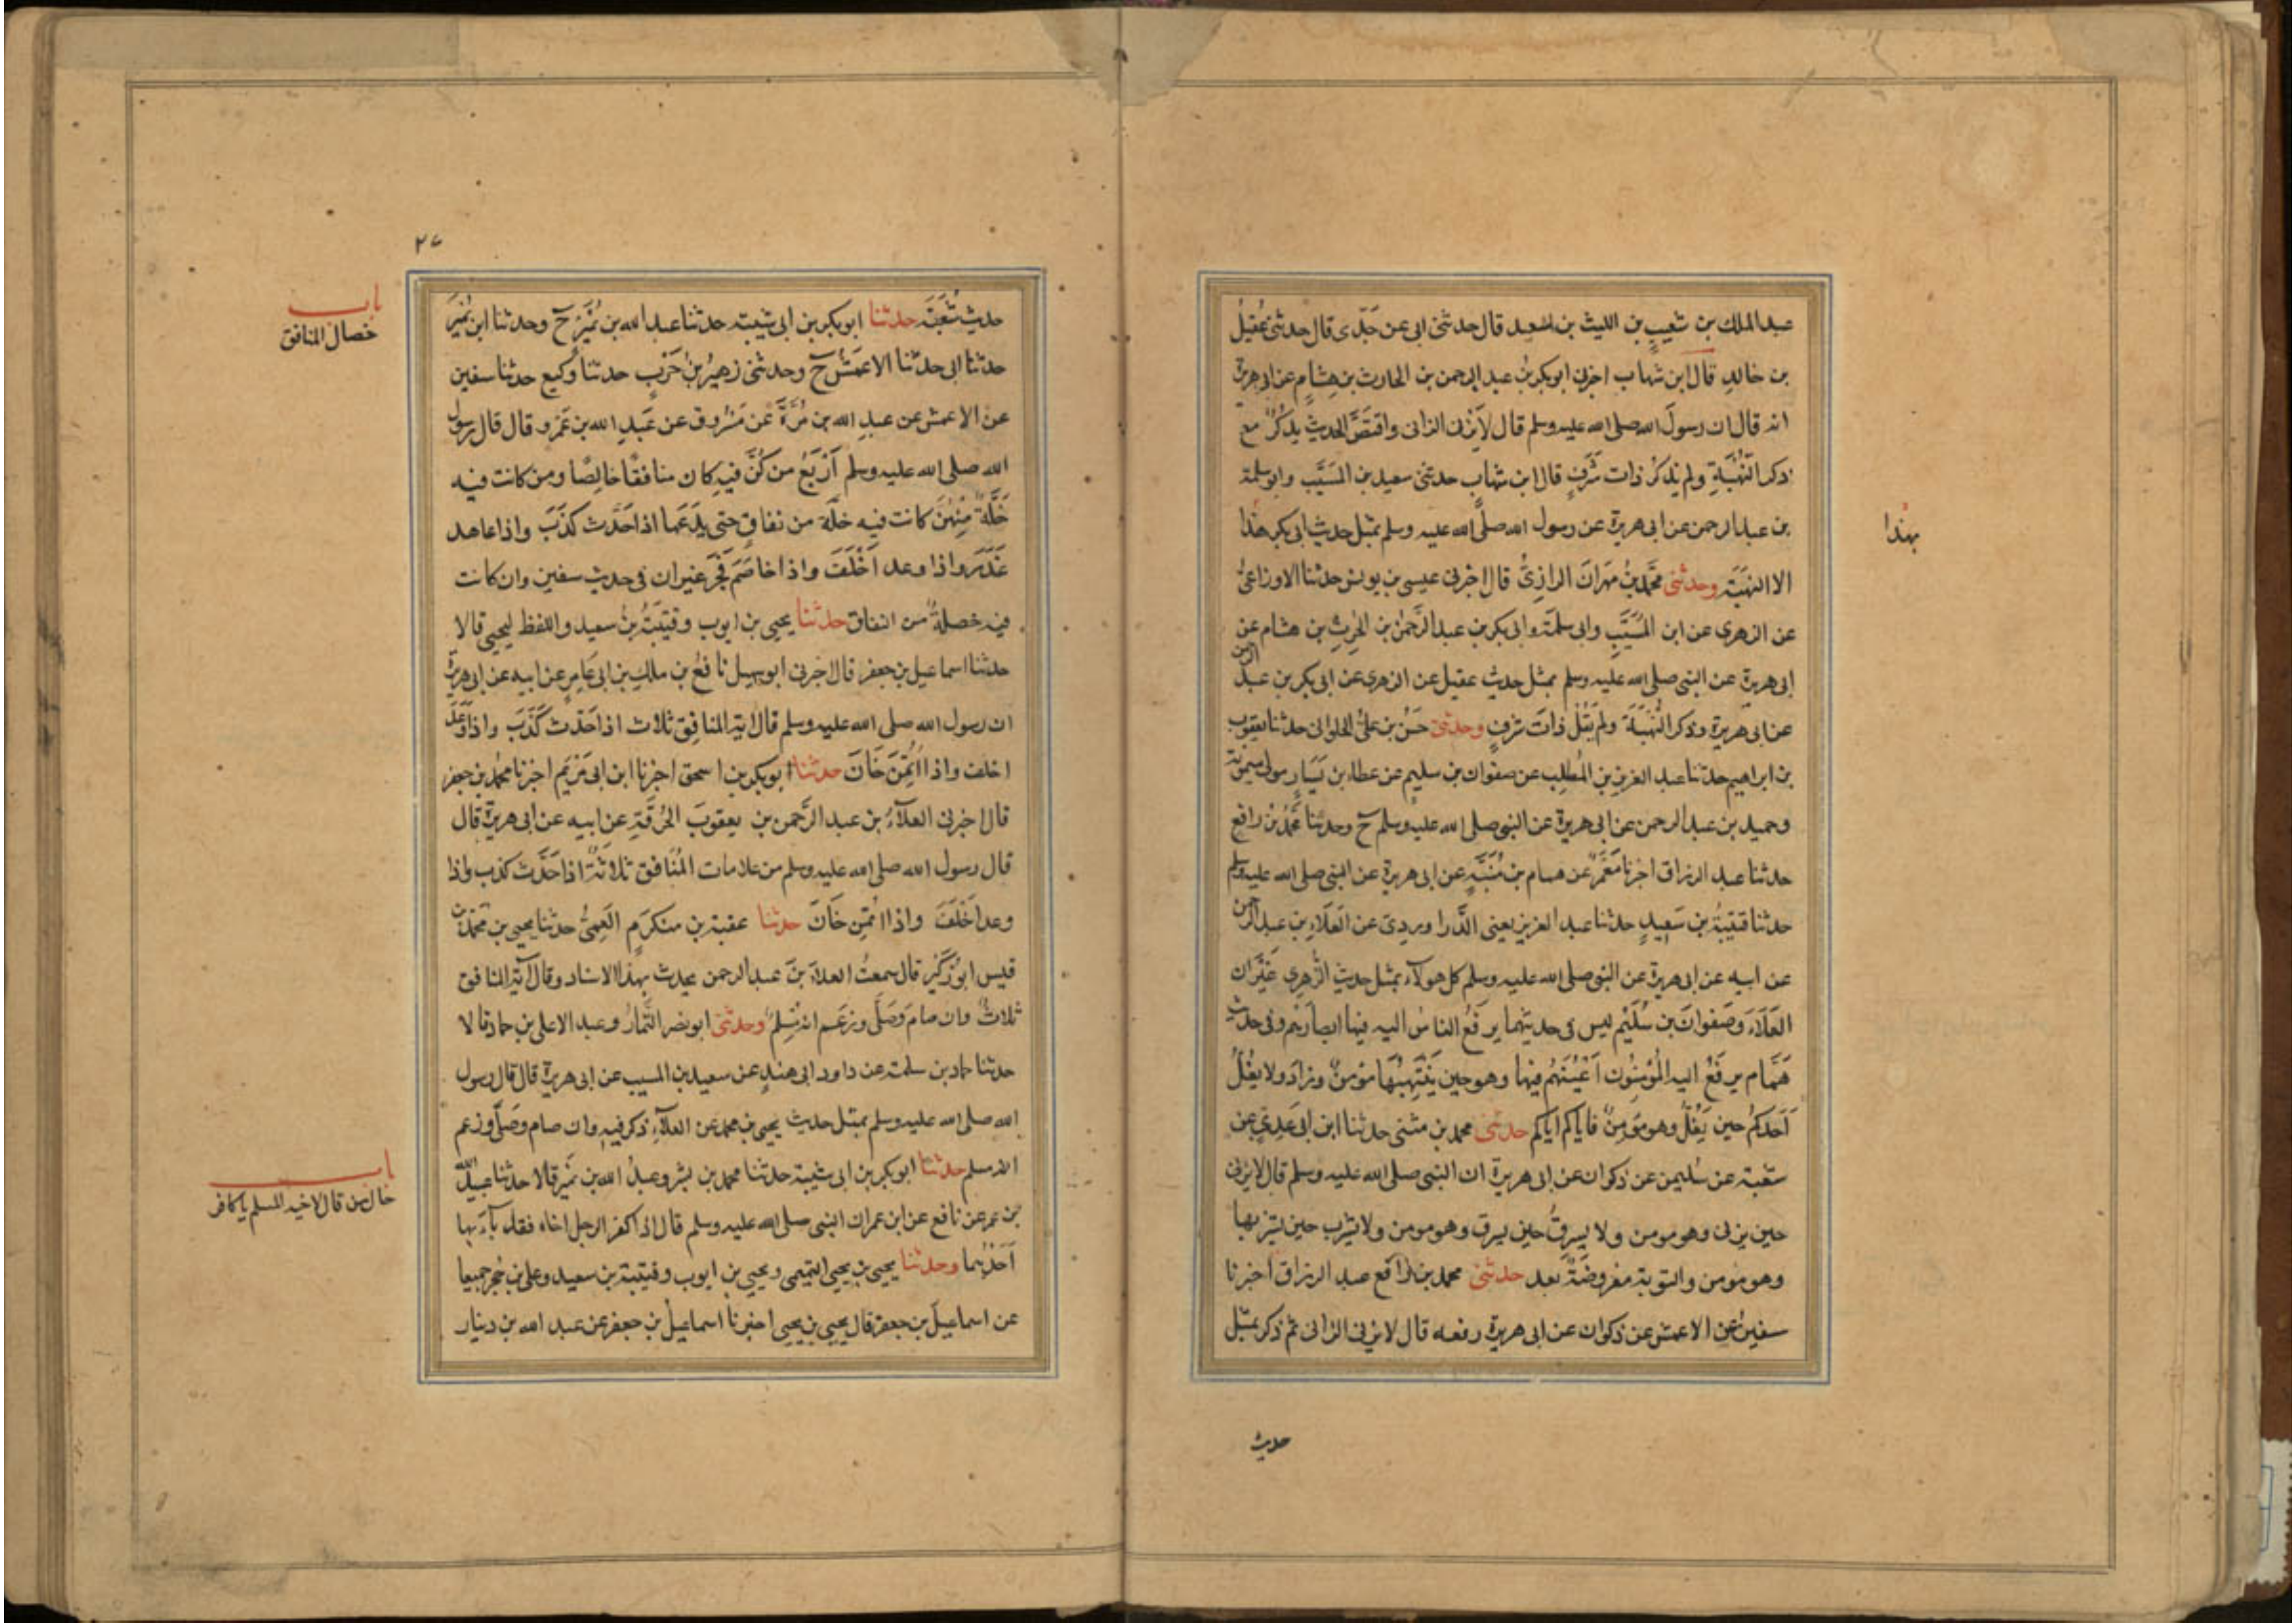 عبد الملك بن شعيب بن الليث بن سعيد قال حدثنى ابى عن جدى قال حدثنى عقيل
بن خالد قال ابن شهاب اخبرنى ابوبكر بن عبد الرحمن بن الحارث بن هشام عن ابى هريرة
انه قال ان رسول الله صلى الله عليه وسلم قال لا يزنى الزانى واقتص الحديث يذكر مع
ذكر النهبة ولم يذكر ذات شرف قال ابن شهاب حدثنى سعيد بن المسيب وابو سلمة
بن عبد الرحمن عن ابى هريرة عن رسول الله صلى الله عليه وسلم بمثل حديث ابى بكر هذا
بهذا
الا النهبة وحدثنى محمد بن مهران الرازى قال اخبرنى عيسى بن يونس حدثنا الاوزاعى
عن الزهرى عن ابن المسيب وابى سلمة وابى بكر بن عبد الرحمن بن الحرث بن هشام عن
ابى هريرة عن النبى صلى الله عليه وسلم بمثل حديث عقيل عن الزهرى عن ابى بكر بن عبد الرحمن
عن ابى هريرة وذكر النهبة ولم يقل ذات شرف وحدثنى حسن بن على الحلوانى حدثنا يعقوب
بن ابراهيم حدثنا عبد العزيز بن المطلب عن صفوان بن سليم عن عطاء بن يسار مولى ميمونة
وحميد بن عبد الرحمن عن ابى هريرة عن النبى صلى الله عليه وسلم ح وحدثنا محمد بن رافع
حدثنا عبد الرزاق اخبرنا معمر عن همام بن منبه عن ابى هريرة عن النبى صلى الله عليه وسلم
حدثنا قتيبة بن سعيد حدثنا عبد العزيز يعنى الدراوردى عن العلاء بن عبد الرحمن
عن ابيه عن ابى هريرة عن النبى صلى الله عليه وسلم كل هولاء بمثل حديث الزهرى غير ان
العلاء وصفوان بن سليم ليس فى حديثهما يرفع الناس اليه فيها ابصارهم وفى حديث
همام يرفع اليه المؤمنون اعينهم فيها وهو حين ينتهبها مؤمن وزاد ولا يغل
احدكم حين يغل وهو مؤمن فاياكم اياكم حدثنى محمد بن مثنى حدثنا ابن ابى عدى عن
شعبة عن سليمن عن ذكوان عن ابى هريرة ان النبى صلى الله عليه وسلم قال لا يزنى
حين يزنى وهو مومن ولا يسرق حين يسرق وهو مومن ولا يشرب حين يشربها
وهو مومن والتوبة مفروضة بعد حدثنى محمد بن رافع عبد الرزاق اخبرنا
سفين عن الاعمش عن ذكوان عن ابى هريرة رفعه قال لا يزنى الزانى ثم ذكر بمثل
حديث
٢٧
حديث شعبة حدثنا ابوبكر بن ابى شيبة حدثنا عبد الله بن نمير ح وحدثنا ابن نمير
باب
خصال المنافق
حدثنا ابى حدثنا الاعمش ح وحدثنى زهير بن حرب حدثنا وكيع حدثنا سفين
عن الاعمش عن عبد الله بن مرة عن مسروق عن عبد الله بن عمرو قال قال رسول
الله صلى الله عليه وسلم اربع من كن فيه كان منافقا خالصا ومن كانت فيه
خلة منهن كانت فيه خلة من نفاق حتى يدعها اذا حدث كذب واذا عاهد
غدر واذا وعد اخلف واذا خاصم فجر غير ان فى حديث سفين وان كانت
فيه خصلة من النفاق حدثنا يحيى بن ايوب وقتيبة بن سعيد واللفظ ليحيى قالا
حدثنا اسماعيل بن جعفر قال اخبرنى ابو سهيل نافع بن ملك بن ابى عامر عن ابيه عن ابى هريرة
ان رسول الله صلى الله عليه وسلم قال اية المنافق ثلاث اذا حدث كذب واذا وعد
اخلف واذا اؤتمن خان حدثنا ابوبكر بن اسحق اخبرنا ابن ابى مريم اخبرنا محمد بن جعفر
قال اخبرنى العلاء بن عبد الرحمن بن يعقوب الحرقة عن ابيه عن ابى هريرة قال
قال رسول الله صلى الله عليه وسلم من علامات المنافق ثلاثة اذا حدث كذب واذا
وعد اخلف واذا اؤتمن خان حدثنا عقبة بن مكرم العمى حدثنا يحيى بن محمد بن
قيس ابو زكير قال سمعت العلاء بن عبد الرحمن يحدث بهذا الاسناد وقال آية المنافق
ثلاث وان صام وصلى وزعم انه مسلم وحدثنى ابو نصر التمار وعبد الاعلى بن حماد قالا
حدثنا حماد بن سلمة عن داود ابى هند عن سعيد بن المسيب عن ابى هريرة قال قال رسول
الله صلى الله عليه وسلم بمثل حديث يحيى بن محمد عن العلاء ذكر فيه وان صام وصلى وزعم
انه مسلم حدثنا ابوبكر بن ابى شيبة حدثنا محمد بن بشر وعبد الله بن نمير قالا حدثنا عبيد الله
باب
حال من قال لاخيه المسلم يا كافر
بن عمر عن نافع عن ابن عمر ان النبى صلى الله عليه وسلم قال اذا اكفر الرجل اخاه فقد باء بها
احدهما وحدثنا يحيى بن يحيى التميمى ويحيى بن ايوب وقتيبة بن سعيد وعلى بن حجر جميعا
عن اسماعيل بن جعفر قال يحيى بن يحيى اخبرنا اسماعيل بن جعفر عن عبد الله بن دينار